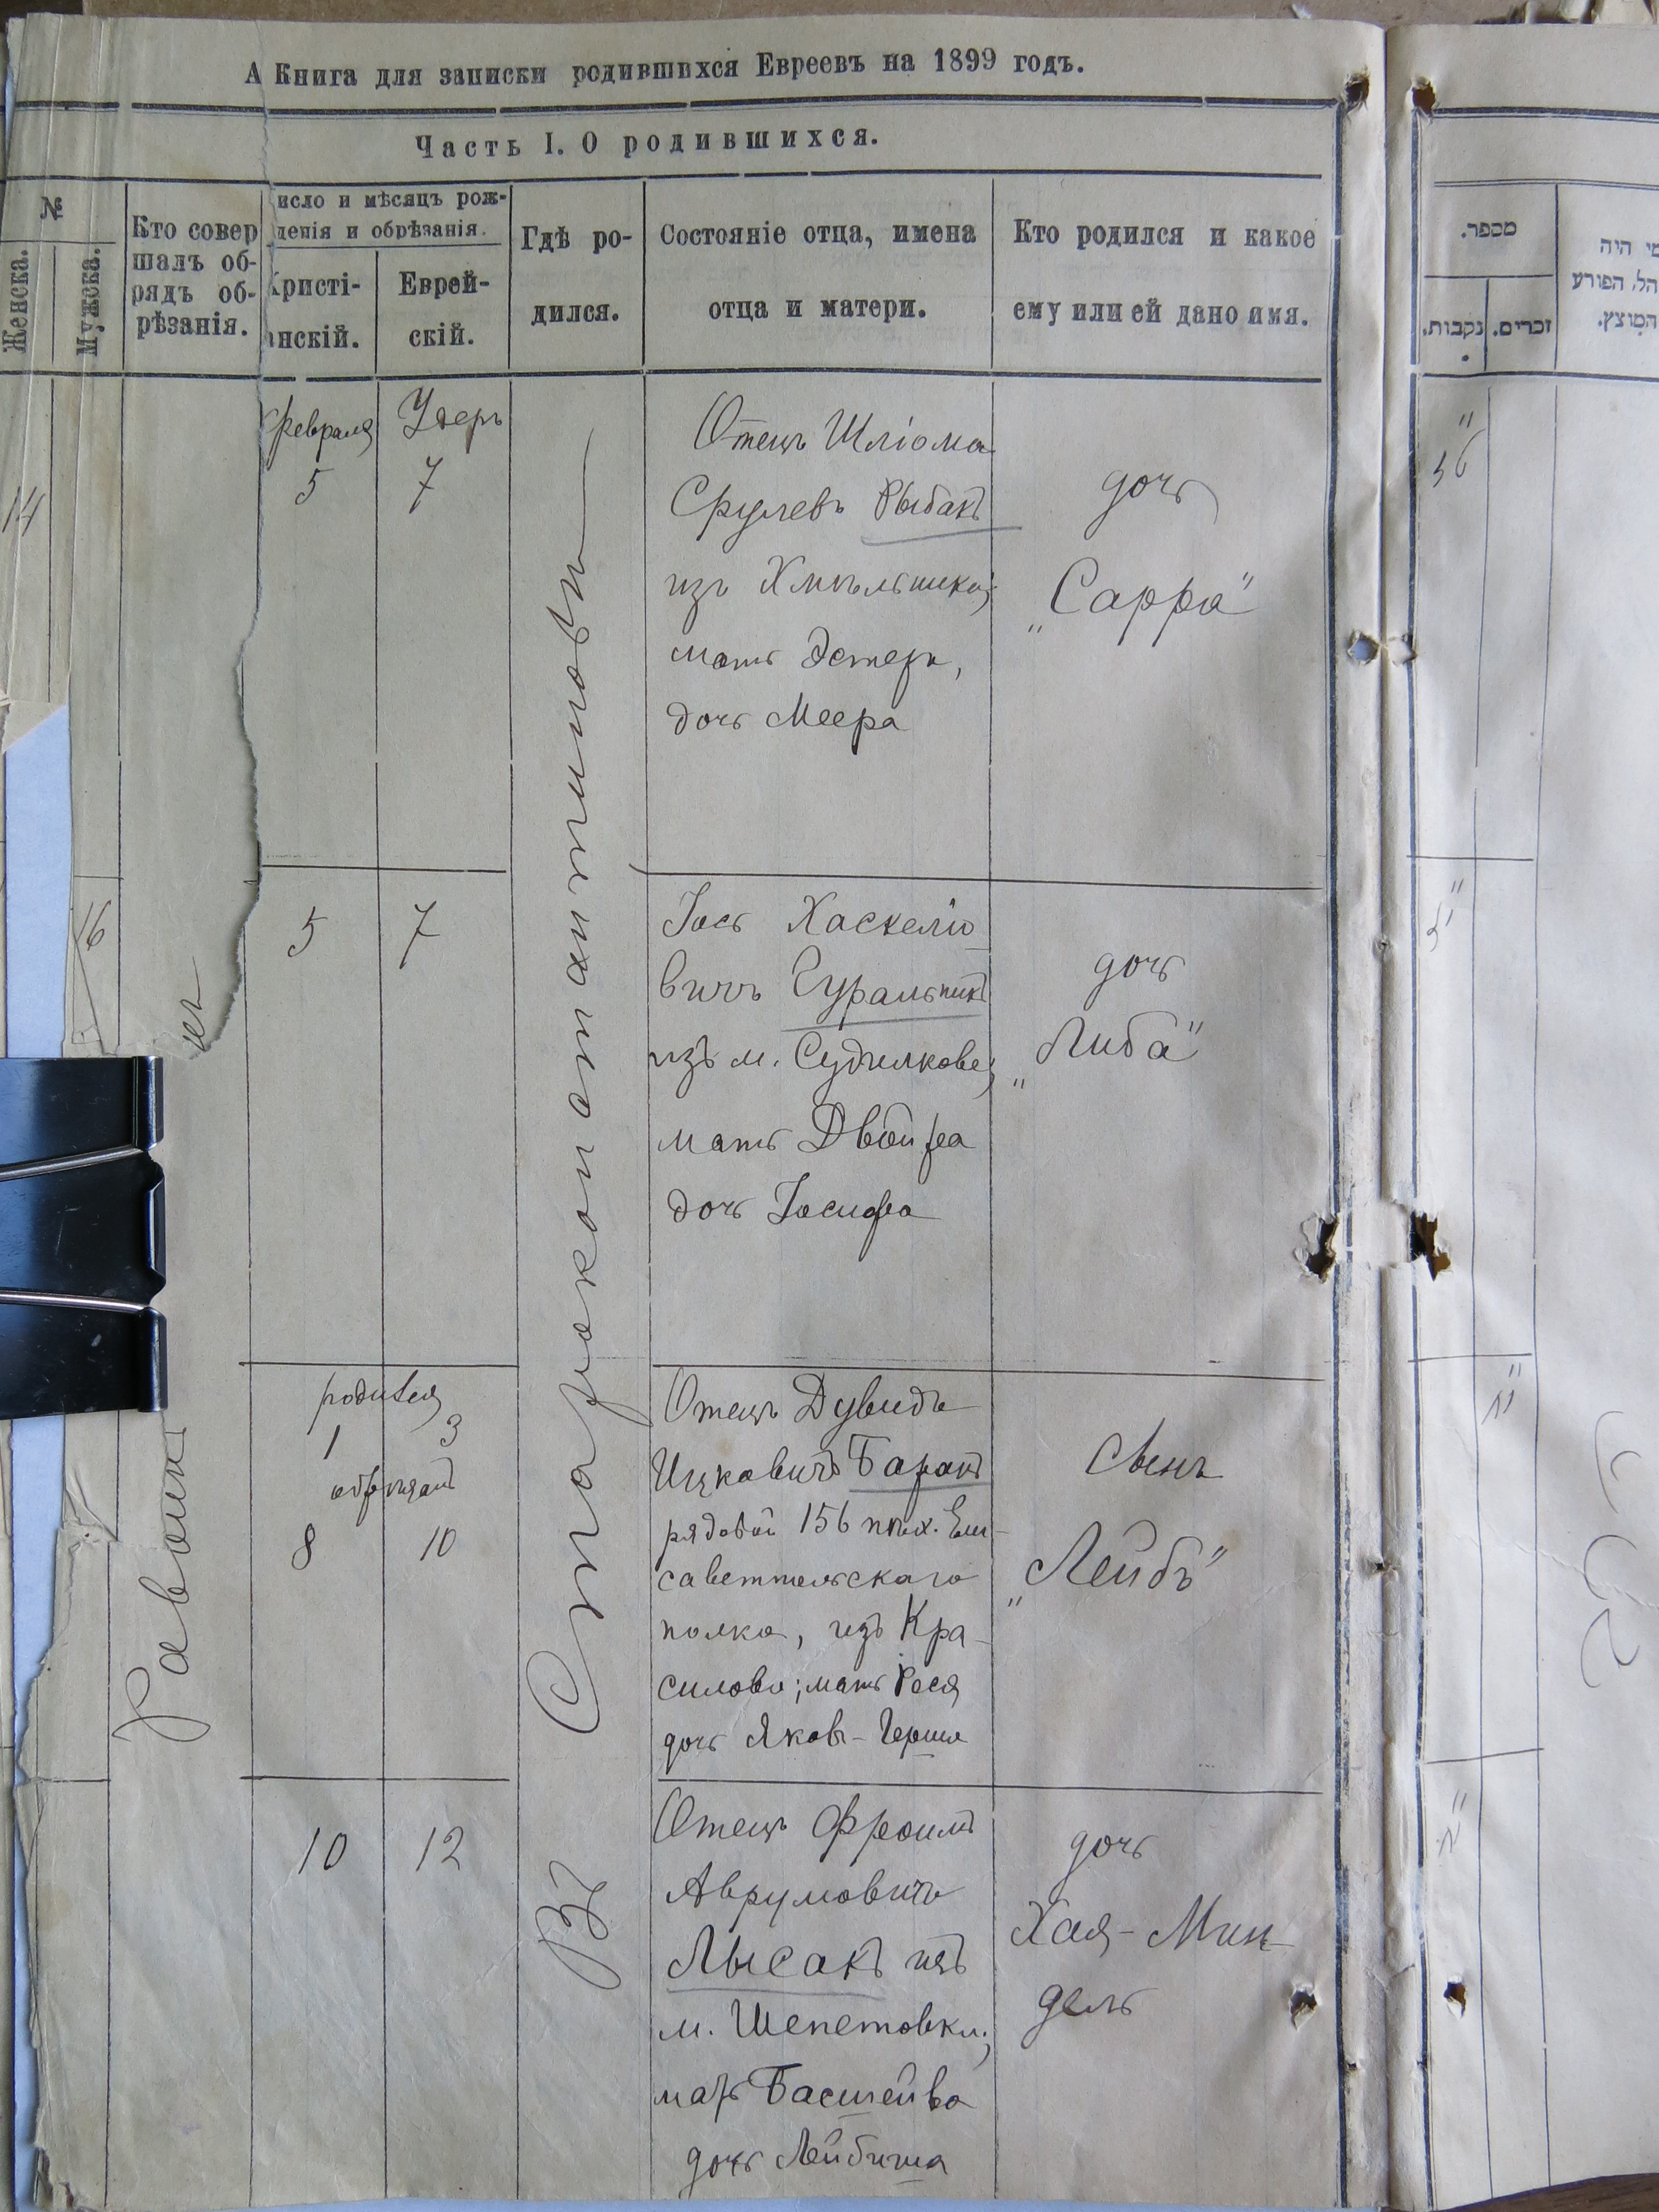 А Книга для записки родившихся Евреевъ на 1899 годъ.
Часть I. О родившихся.
№
Женска.
Мужска.
Кто совер
шалъ об-
рядъ об-
рѣзанія.
исло и мѣсяцъ рож-
денія и обрѣзанія.
Кристі-
анскій.
Еврей-
скій.
Гдѣ ро-
дился.
Состояніе отца, имена
отца и матери.
Кто родился и какое
ему или ей дано имя.
מספר.
נקבות.
זכרים.
מי היה
הפורע
המוצץ.
14
Февраля
5
Удеръ
7
Отецъ Шліома
Срулевъ Рыбакъ
изъ Хмѣльника;
мать Эстеръ,
дочь Меера
дочь
„Сарра"
16
5
7
Іось Хаскеліо
вичъ Гуральникъ
изъ м. Судилкова;
мать Двойра
дочь Іосифа
дочь
„Либа"
родился
1
3
обрѣзанъ
8
10
Отецъ Дувидъ
Ицковичъ Баранъ
рядовой 156 пѣх. Ели-
саветпольскаго
полка, изъ Кра-
силова; мать Рося
дочь Яковъ-Герша
сынъ
„Лейбъ"
10
12
Отецъ Фроимъ
Аврумовичъ
Лысакъ изъ
м. Шепетовки;
мать Басшейва
дочь Лейбиша
дочь
Хая-Мин
дель
Въ Староконстантиновѣ
Раввинъ